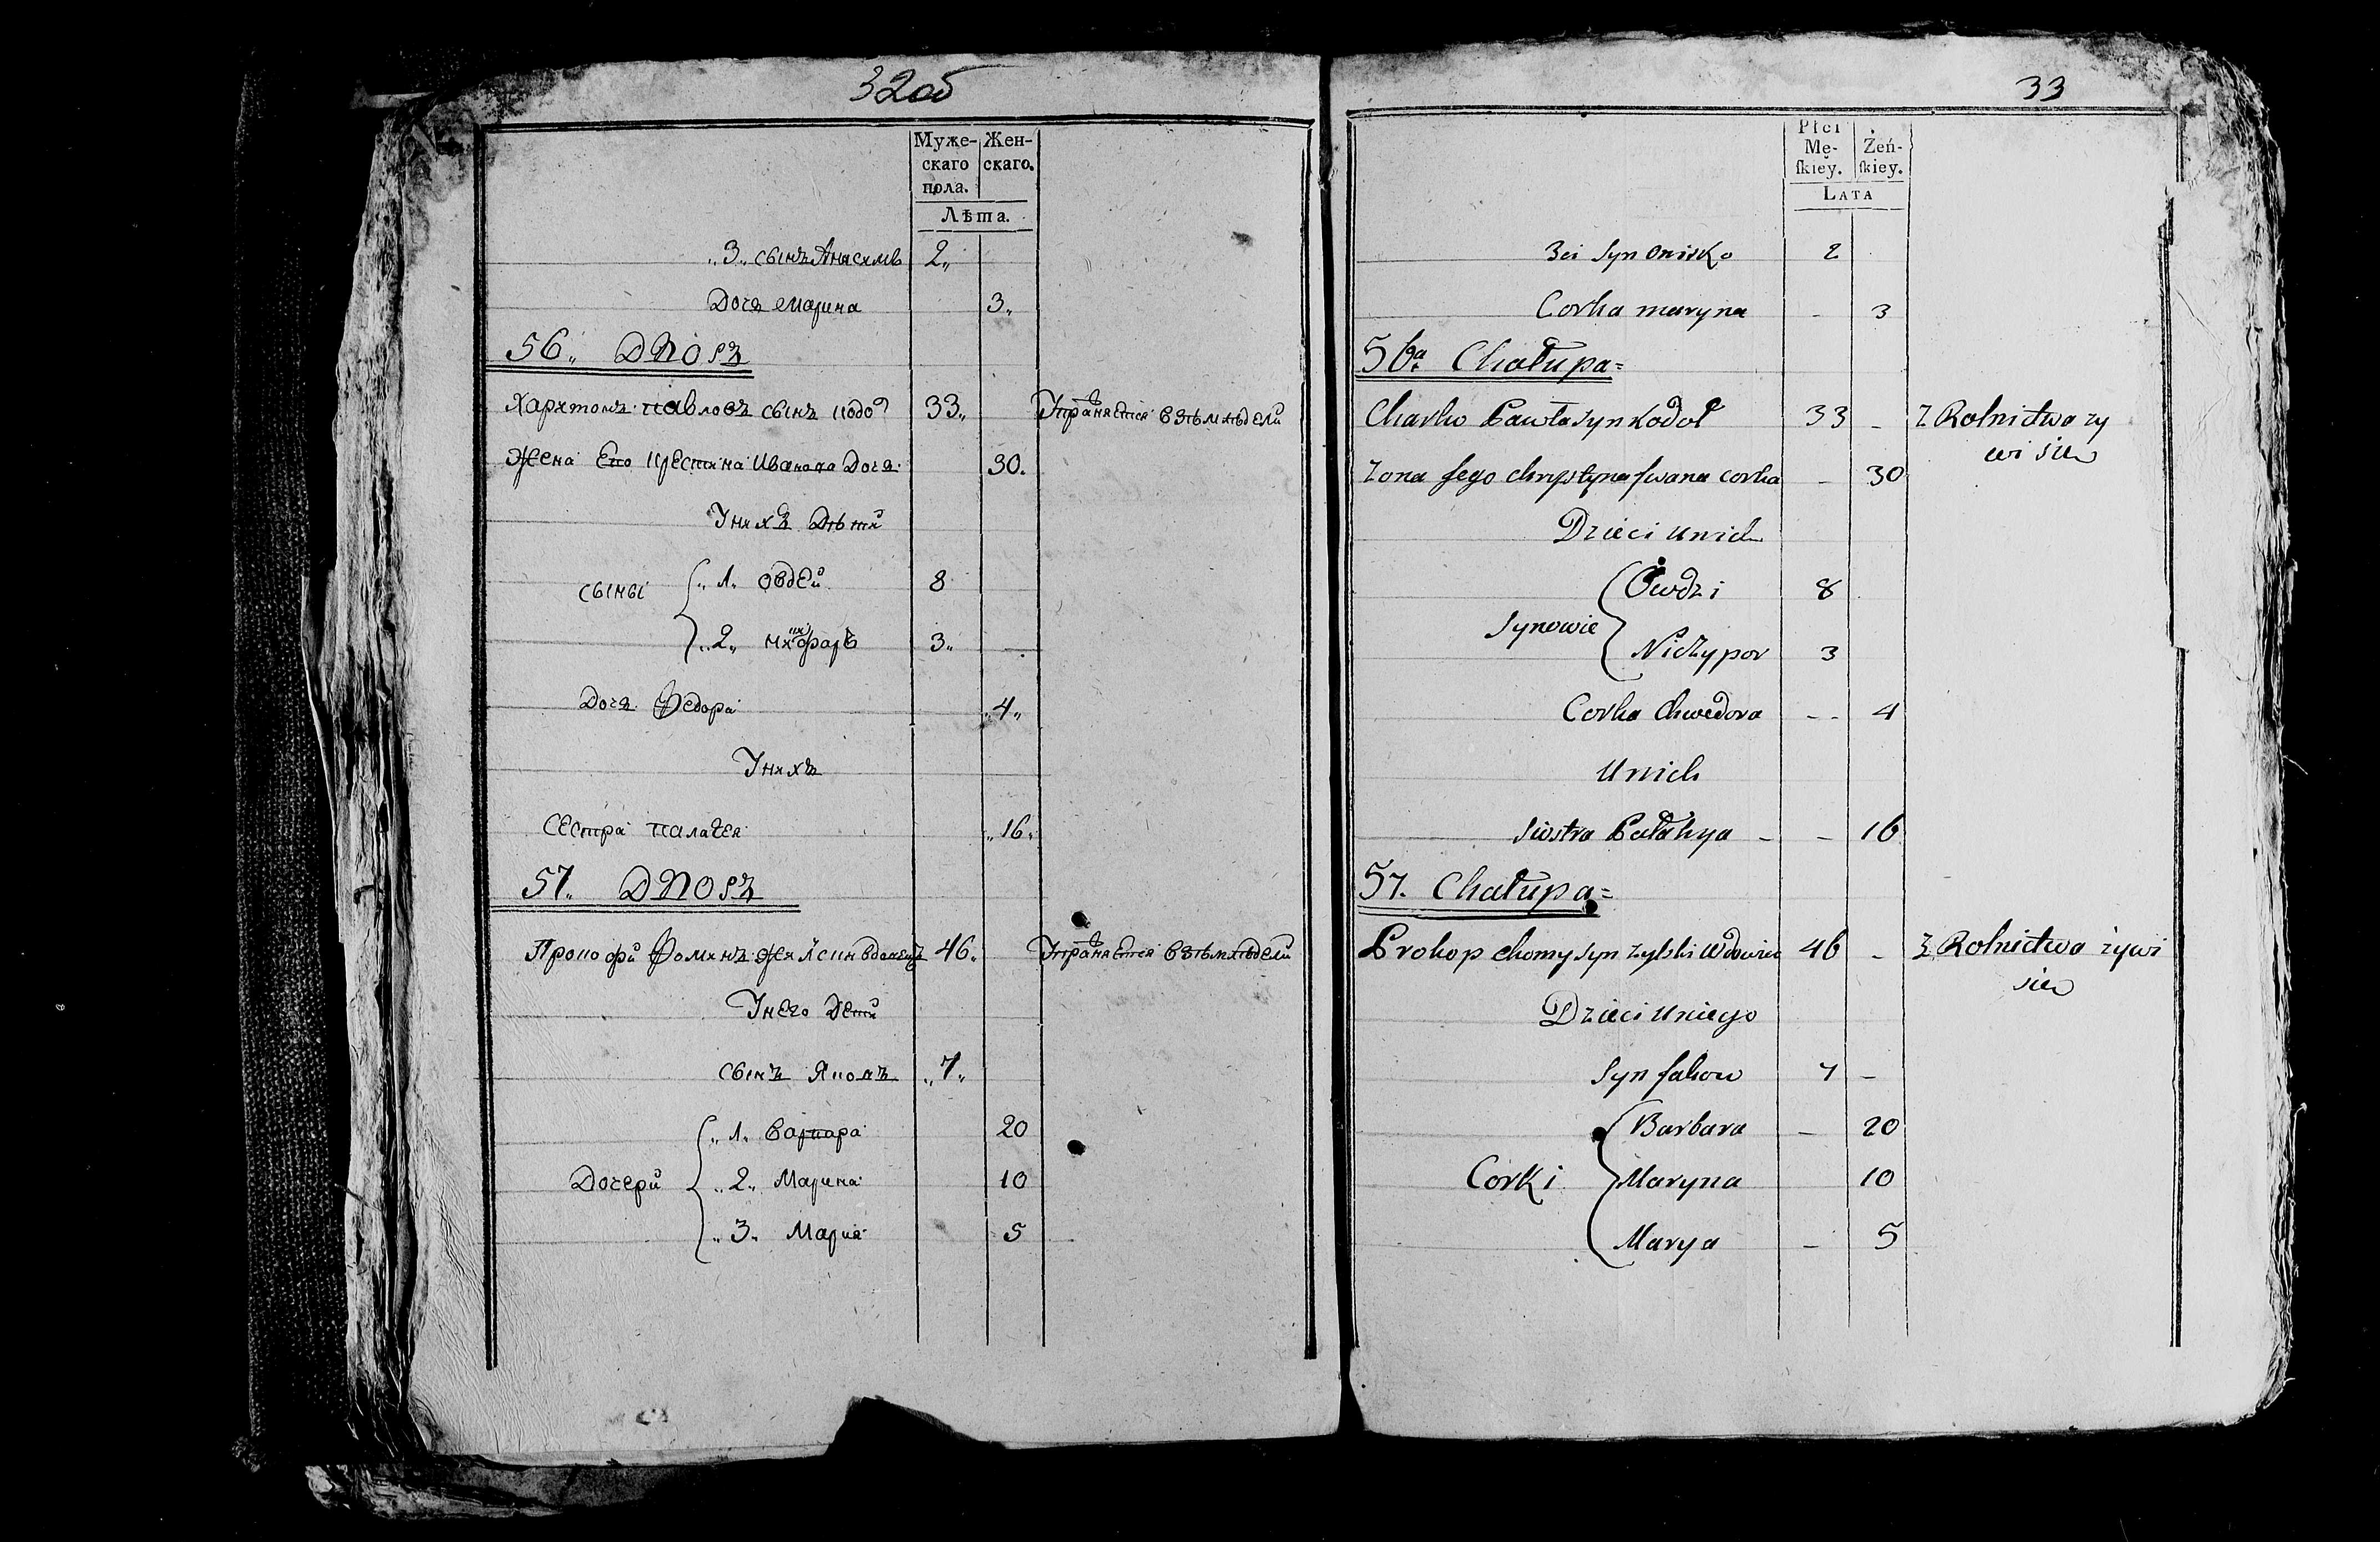 32об
Муже-
скаго
пола.
Жен-
скаго.
Лѣта.
„3„ сынъ Анисимъ 2„
Дочь Марина 3„
56„ Дворъ
Харитонъ Павловъ сынъ 33„
Жена Его Крестина Иванова Дочь 30.
Унихъ Дѣти
сыны
„1„ Овдей 8
„2„ 3„
Дочь Федора „4„
Унихъ
Сестра Палагея „16„
57„ Дворъ
46„
Унего Дети
сынъ Яковъ „7„
Дочери
„1„ Варвара 20
„2„ Марина 10
„3„ Мария 5
33
Płci
Mę-
ſkiey.
Żeń-
ſkiey.
LATA
3ci Syn Onisko 2
Corka maryna - 3
56a. Chałupa=
Charko Pawła syn Kodoł 33 - Z Rolnictwa zy
wi sie
Zona Jego chrystyna Jwana corka - 30
Dzieci unich
Synowie
Owdzi 8
Niczypor 3
Corka Chwedora - - 4
Unich
Siostra Pałahya - - 16
57. Chałupa=
Prokop chomy syn zylski Wdowiec 46 - Z Rolnictwa żywi
sie
Dzieci Uniego
Syn Jakow 7 -
Corki
Barbara - 20
Maryna 10
Marya - 5